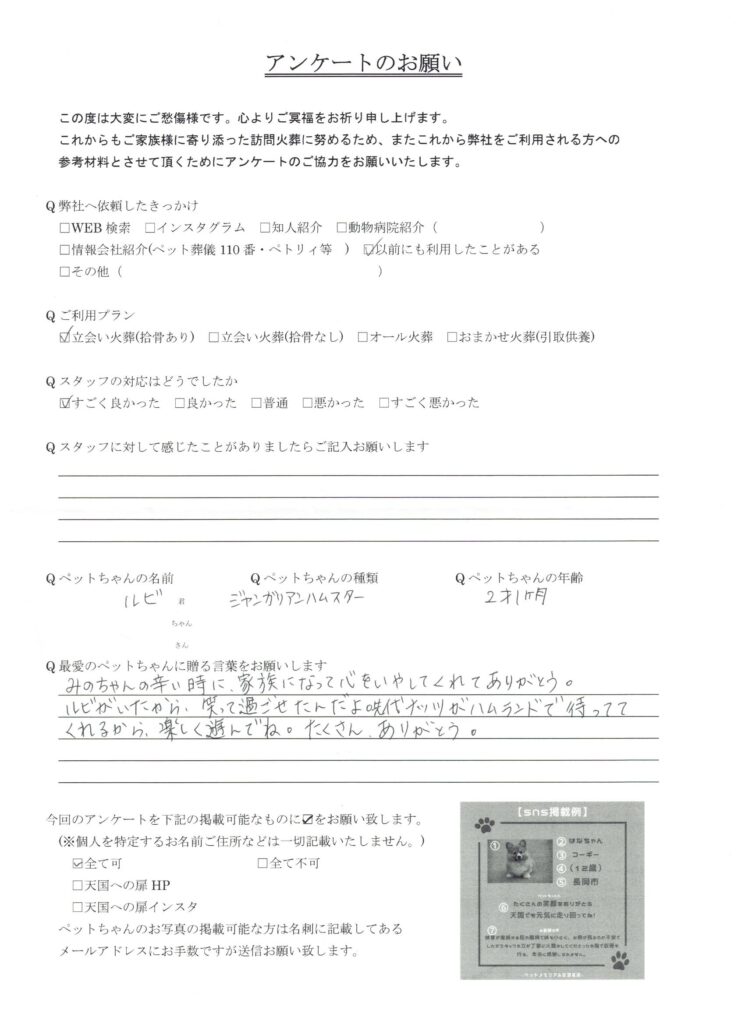 アンケートのお願い
この度は大変にご愁傷様です。心よりご冥福をお祈り申し上げます。
これからもご家族様に寄り添った訪問火葬に努めるため、またこれから弊社をご利用される方への
参考材料とさせて頂くためにアンケートのご協力をお願いいたします。
Q 弊社へ依頼したきっかけ
□WEB 検索 □インスタグラム □知人紹介 □動物病院紹介（ ）
□情報会社紹介(ペット葬儀 110 番・ペトリィ等 ) ☑以前にも利用したことがある
□その他（ ）
Q ご利用プラン
☑立会い火葬(拾骨あり) □立会い火葬(拾骨なし) □オール火葬 □おまかせ火葬(引取供養)
Q スタッフの対応はどうでしたか
☑すごく良かった □良かった □普通 □悪かった □すごく悪かった
Q スタッフに対して感じたことがありましたらご記入お願いします
Q ペットちゃんの名前 Q ペットちゃんの種類 Q ペットちゃんの年齢
ルビ 君 ジャンガリアンハムスター 2才1ヶ月
ちゃん
さん
Q 最愛のペットちゃんに贈る言葉をお願いします
みのちゃんの辛い時に、家族になって心をいやしてくれてありがとう。
ルビがいたから、笑って過ごせたんだよ 代ナッツがハムランドで待ってて
くれるから、楽しく遊んでね。たくさん、ありがとう。
今回のアンケートを下記の掲載可能なものに☑をお願い致します。
(※個人を特定するお名前ご住所などは一切記載いたしません。)
☑全て可 □全て不可
□天国への扉 HP
□天国への扉インスタ
ペットちゃんのお写真の掲載可能な方は名刺に記載してある
メールアドレスにお手数ですが送信お願い致します。
【sns掲載例】
① ② はなちゃん
③ コーギー
④ (12歳)
⑤ 長岡市
⑥ たくさんの笑顔をありがとう
天国でも元気に走り回ってね!
⑦